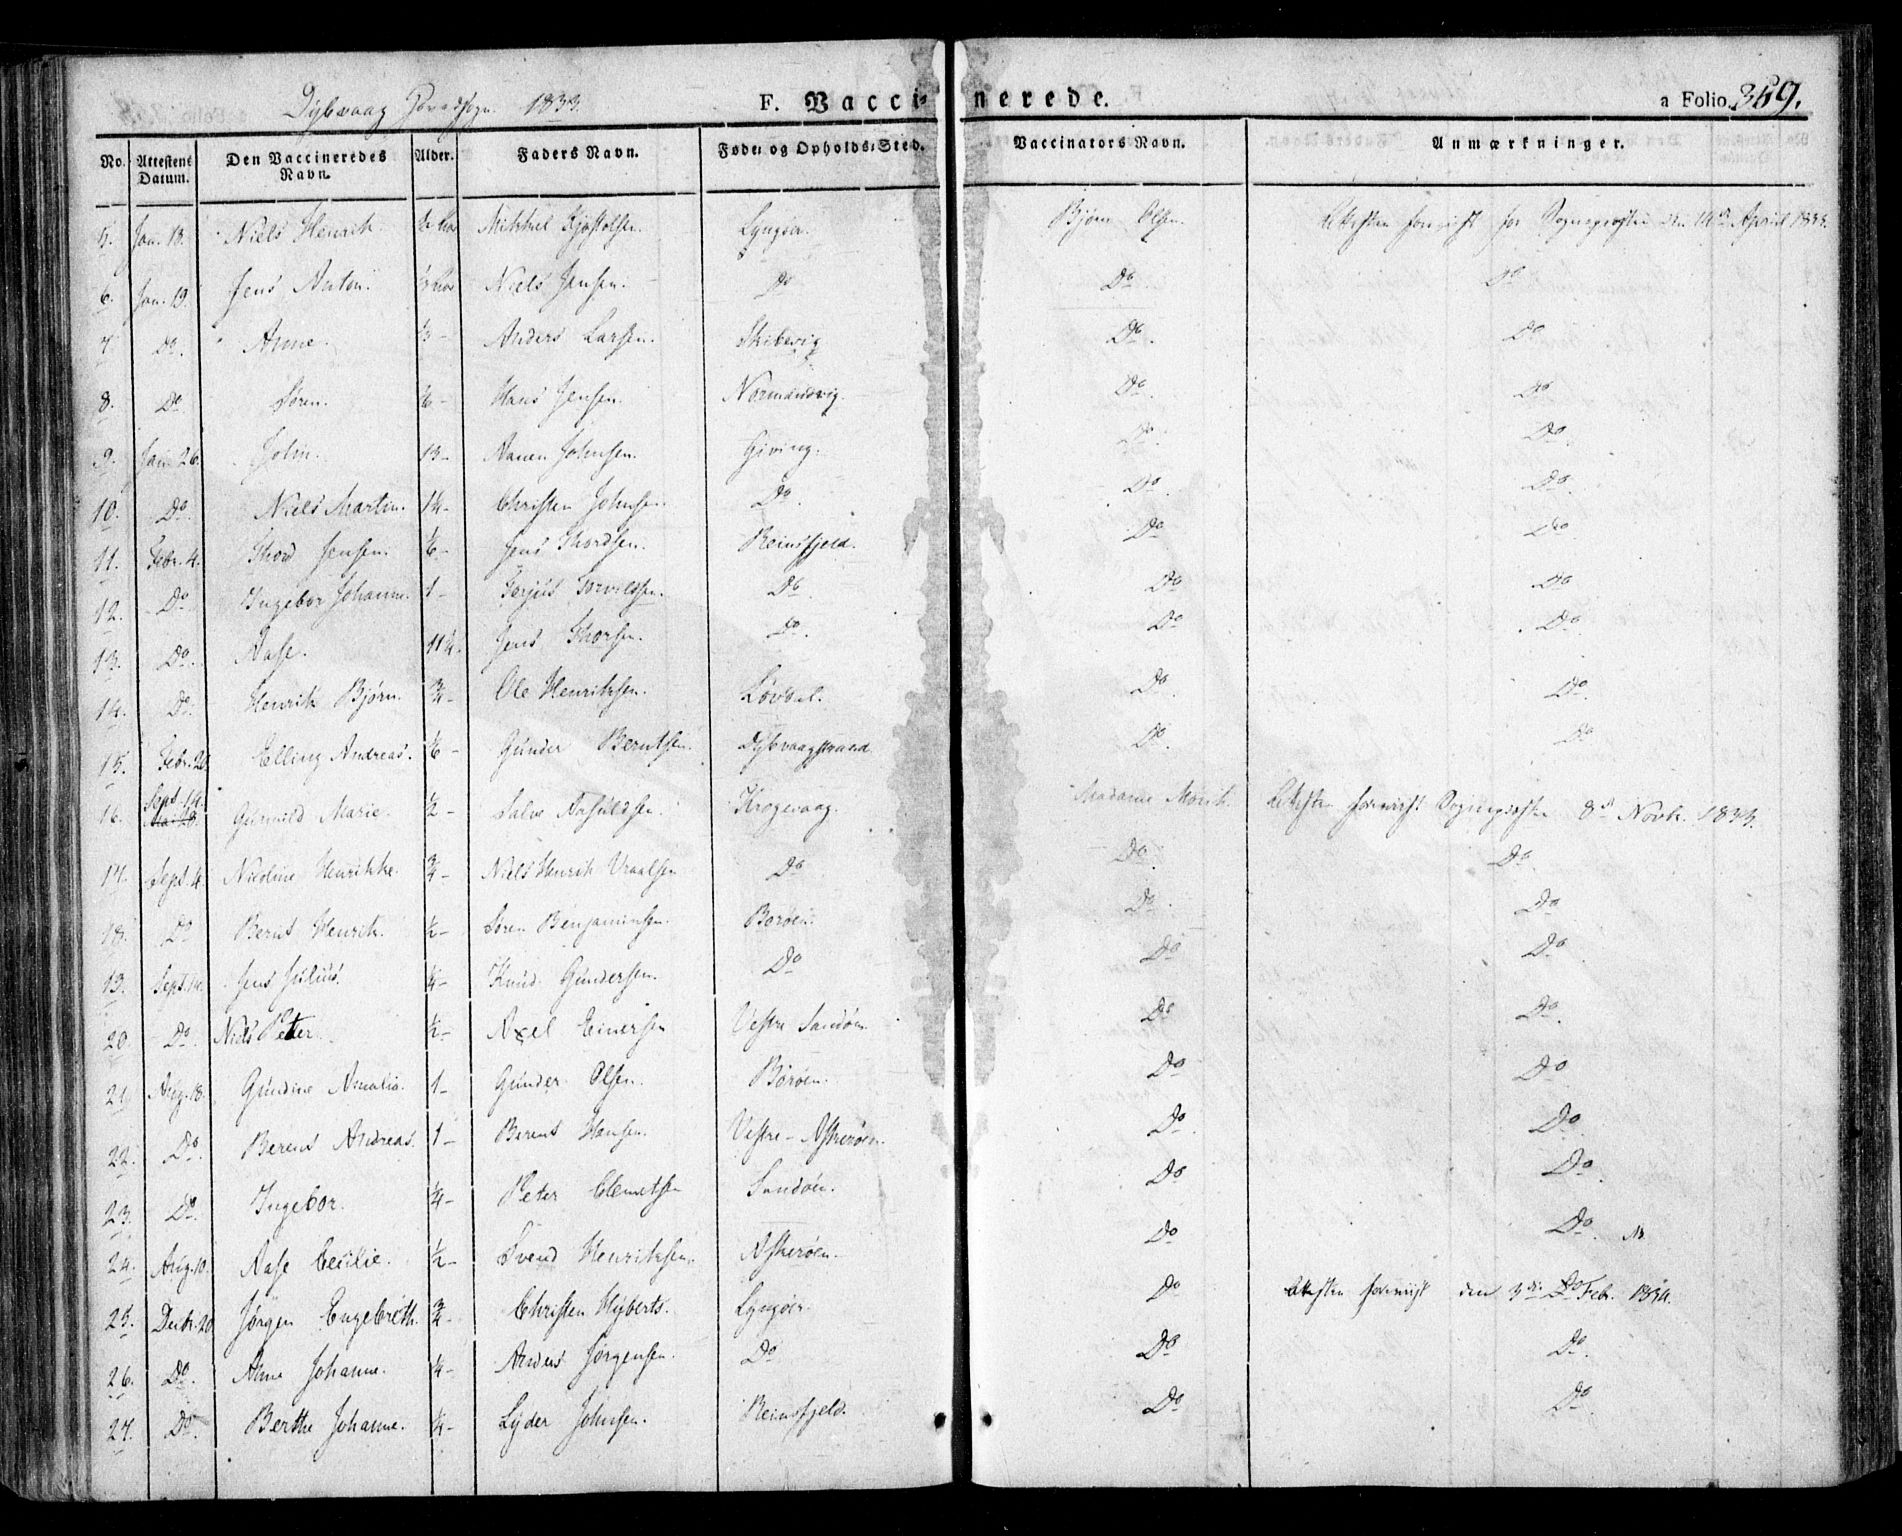 Dybvaag Hovedsogn 1833. F. Vaccinerede. a Folio 369.
No. Attestens Datum. Den Vaccineredes Navn. Alder. Faders Navn. Føde- og Opholds-Sted. Vaccinators Navn. Anmærkninger.
5. Jan. 13. Niels Henrik. Mikkel Kjøstolsen. Lyngøer. Bjørn Olsen. Attesten foreviist for Sognepræsten den 14de April 1833.
6. Jan. 19. Jens Anton. Niels Jensen. Do Do Do
7. Do. Anne. 1/3 - Anders Larsen. Skibevig Do. Do
8. Do Søren. 1/6 - Hans Jensen. Normandvig. Do. Do
9. Jan. 26. John. 13 - Aanen Johnsen. Giving. Do. Do
10. Do. Niels Martin. 1/4 - Christen Johnsen. Do. Do. Do.
11. Febr. 4. Thord Jensen. 1/6 - Jens Thordsen. Reinsfjeld. Do Do
12. Do. Ingebor Johanne. 1 - Terjus Torvildsen. Do. Do Do
13. Do. Aase. 11 1/2. Jens Thorsen. Do. Do Do.
14. Do. Henrik Bjørn. 3/4 - Ole Henriksen. Løvdal. Do Do.
15. Febr. 20 Elling Andreas. 1/6 - Gunder Berntsen. Dybvaagstrand Do. Do
16. Sept. 14. Gunnild Marie. 1/2 - Salve Aasuldsen. Krogevaag. Madame Monk. Attesten foreviist Sognepræsten 8de Novbr. 1833.
17. Sept. 4. Nicoline Henrikke. 3/4 - Niels Henrik Vraalsen Do Do. Do
18. Do Bernt Henrik. 1/2 - Søren Benjaminsen. Borøen. Do. Do
19. Sept. 14. Jens Julius. 1/4 - Knud Gundersen. Do Do Do
20. Do. Niels Peter. 1/2 - Axel Einersen Vestre Sandøen. Do Do.
21. Aug. 18. Gundine Amalia. 1 - Gunder Olsen. Borøen. Do Do
22. Do. Berent Andreas. 1 - Berent Hansen. Vestre-Askerøen. Do Do.
23. Do. Ingebor. 1/4 - Peter Clemetsen Sandøen. Do Do.
24. Aug. 10. Aase Cecilie. 1/2 - Svend Henriksen. Askerøen. Do Do.
25. Decbr. 20 Jørgen Engebreth. 3/4 - Christen Hyberts. Lyngøer. Do Attesten foreviist den 3die Febr. 1834.
26. Do. Anne Johanne. 1/4 - Anders Jørgensen. Do Do Do.
27. Do. Berthe Johanne. 1/4 - Lyder Johnsen. Reinsfjeld. Do Do